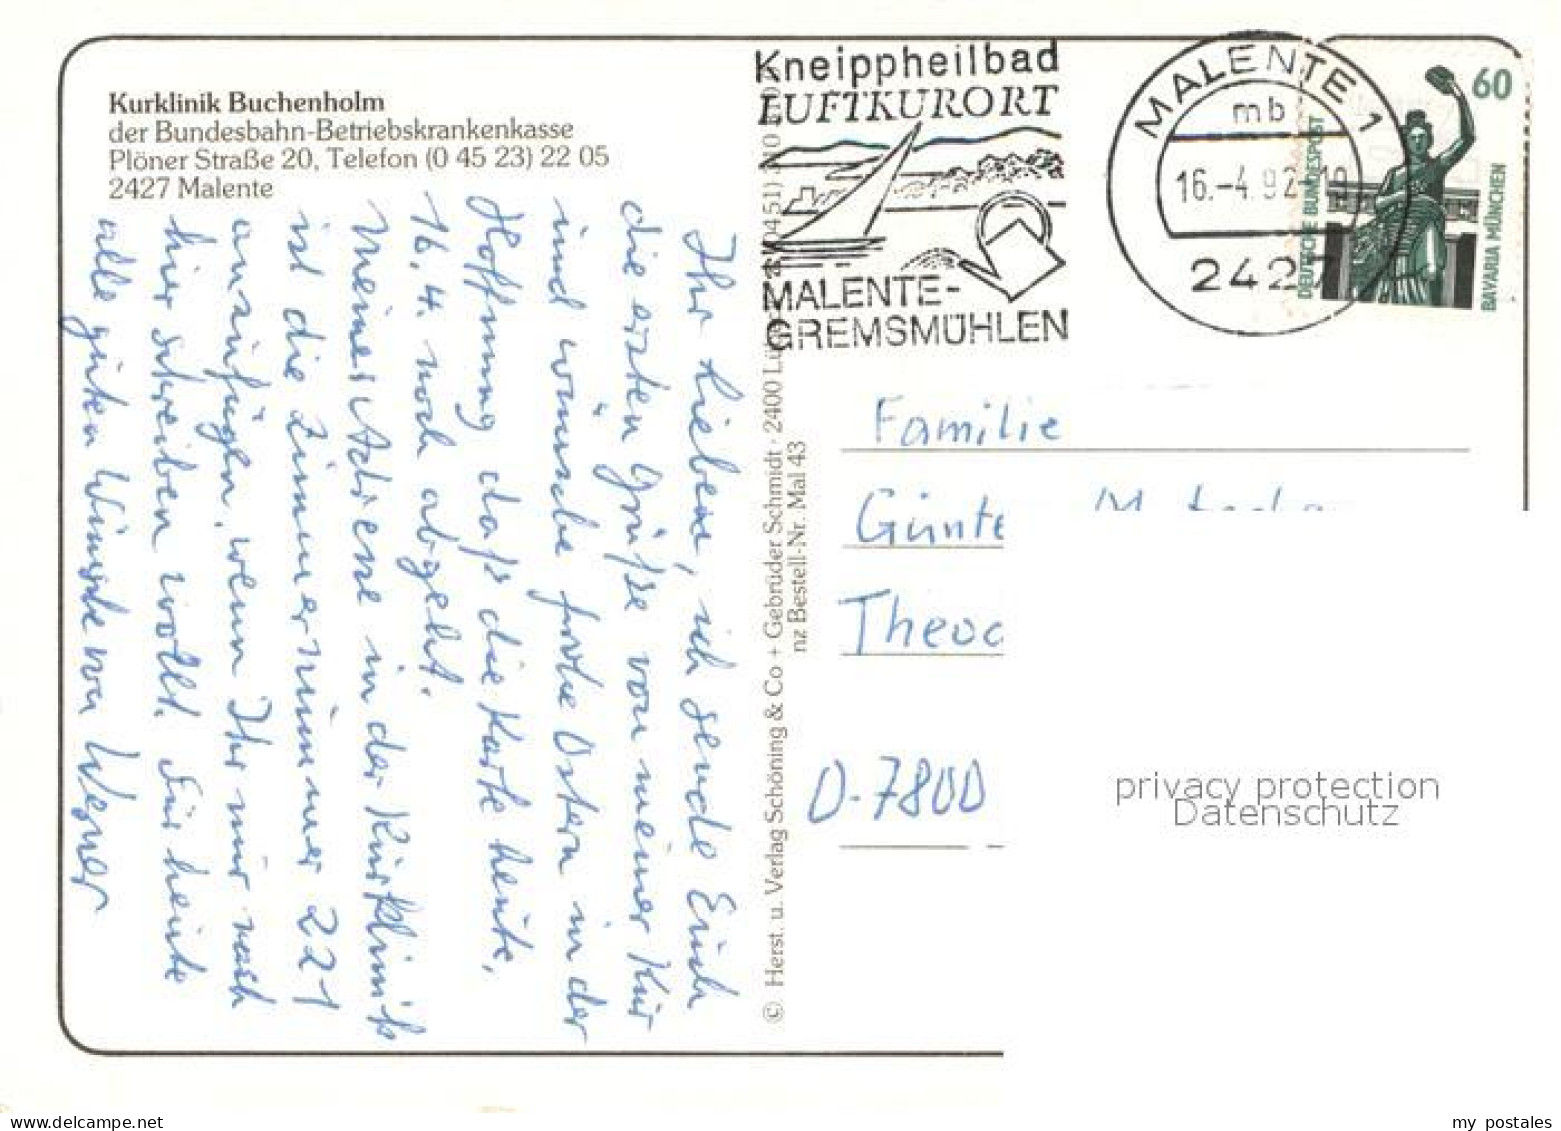 Kurklinik Buchenholm
der Bundesbahn-Betriebskrankenkasse
Plöner Straße 20, Telefon (0 45 23) 22 05
2427 Malente
Ihr Lieben, ich sende Euch
die ersten Grüße von meiner Kur
und wünsche frohe Ostern in der
Hoffnung daß die Karte heute,
16.4. noch abgeht.
Meiner Adresse in der Kurklinik
ist die Zimmernummer 221
anzufügen, wenn Ihr mir nach
hier schreiben wollt. Für heute
alle guten Wünsche von Werner
© Herst. u. Verlag Schöning & Co + Gebrüder Schmidt · 2400
nz Bestell-Nr. Mal 43
Kneippheilbad
LUFTKURORT
MALENTE-
GREMSMÜHLEN
MALENTE 1
mb
16.-4.92-10
2427
60
DEUTSCHE BUNDESPOST
BAVARIA MÜNCHEN
Familie
Günte
Theod
D-7800
privacy protection
Datenschutz
my postales